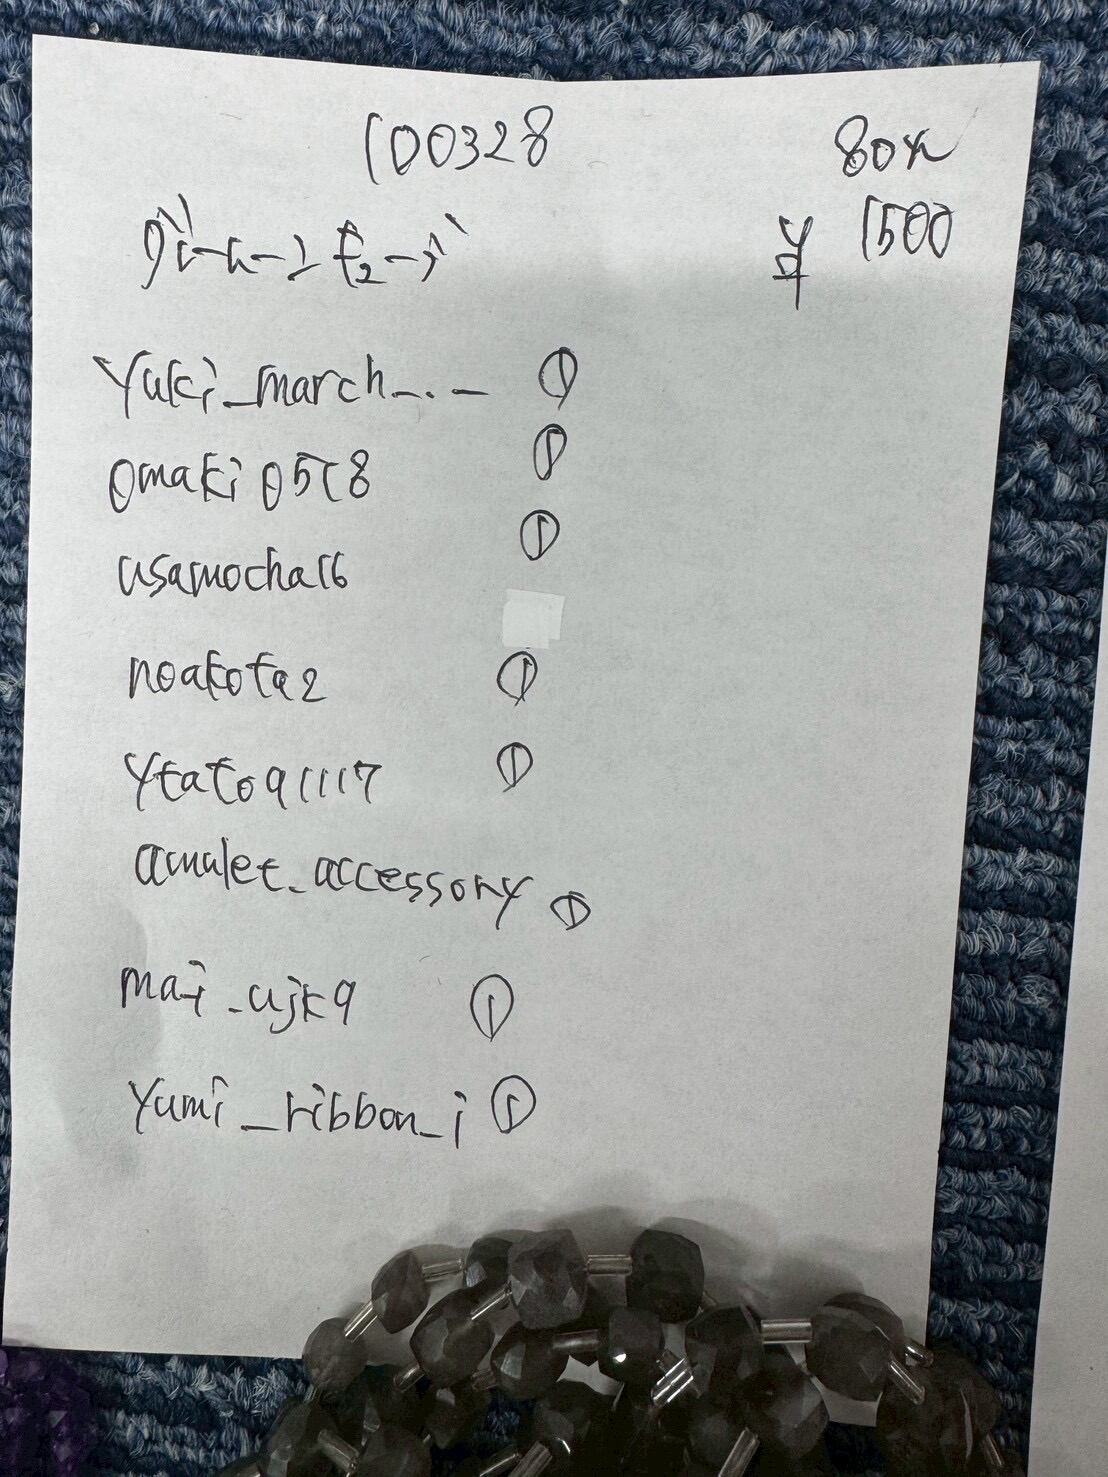 100328
80x
ダークームーンstone
¥ 1500
yuki_march_._ ①
omaki0518 ①
usamocha16 ①
noakota2 ①
ytato91117 ①
amulet_accessory ①
mai_ujk9 ①
yumi_ribbon_i ①